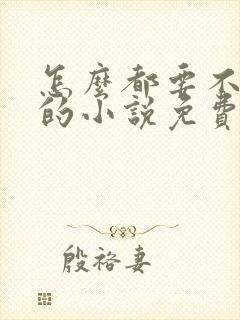 怎麼都要不
的小說免費
殷裕妻